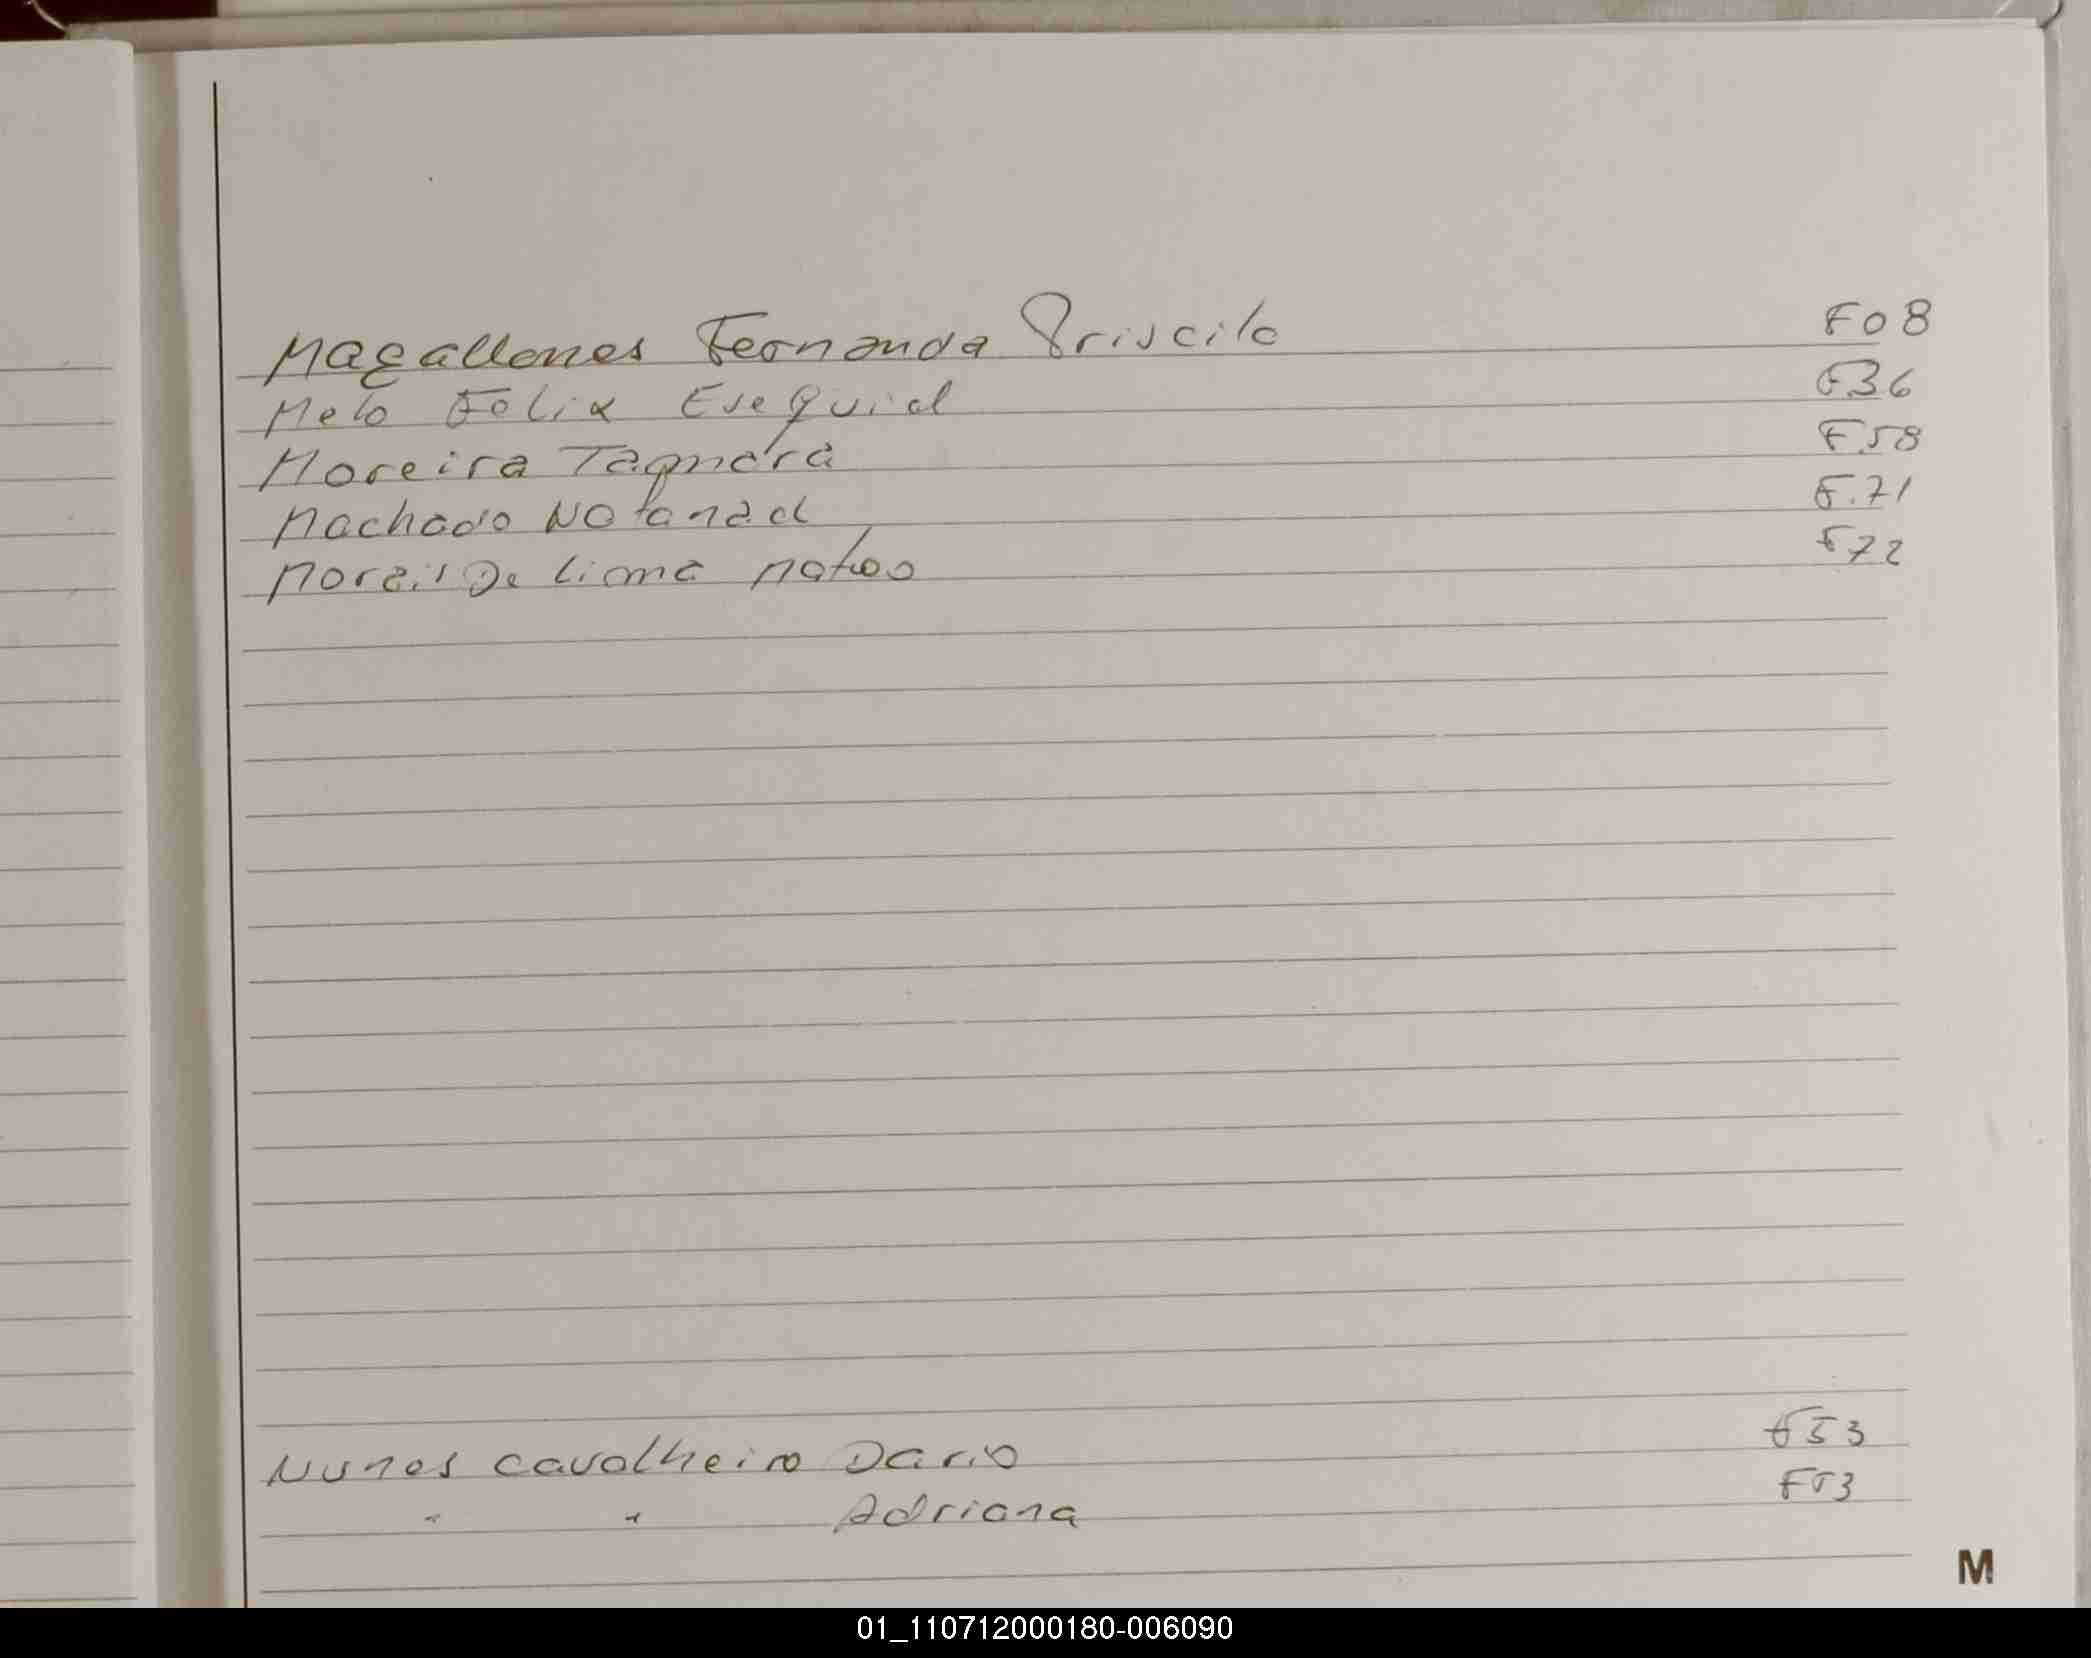 Magallones Fernanda Priscila F08
Melo Felix Esequiel F.36
Moreira Tagmara F.58
Machado Natanael F.71
Morais De Lima Mateo F72
Nunes Cavalheiro Dario F53
" " Adriana F53
M
01_110712000180-006090